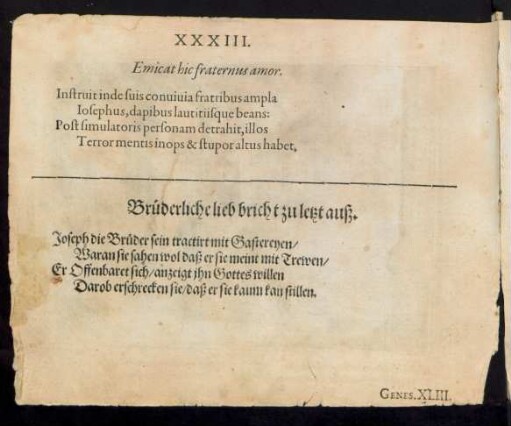 XXXIII.
Emicat hic fraternus amor.
Instruit inde suis conuiuia fratribus ampla
Iosephus, dapibus lautitiisque beans:
Post simulatoris personam detrahit, illos
Terror mentis inops & stupor altus habet.
Brüderliche lieb bricht zu letzt auß.
Joseph die Brüder sein tractirt mit Gastereyen/
Waran sie sahen wol daß er sie meint mit Trewen/
Er Offenbaret sich/ anzeigt jhn Gottes willen
Darob erschrecken sie/ daß er sie kaum kan stillen.
GENES. XLIII.